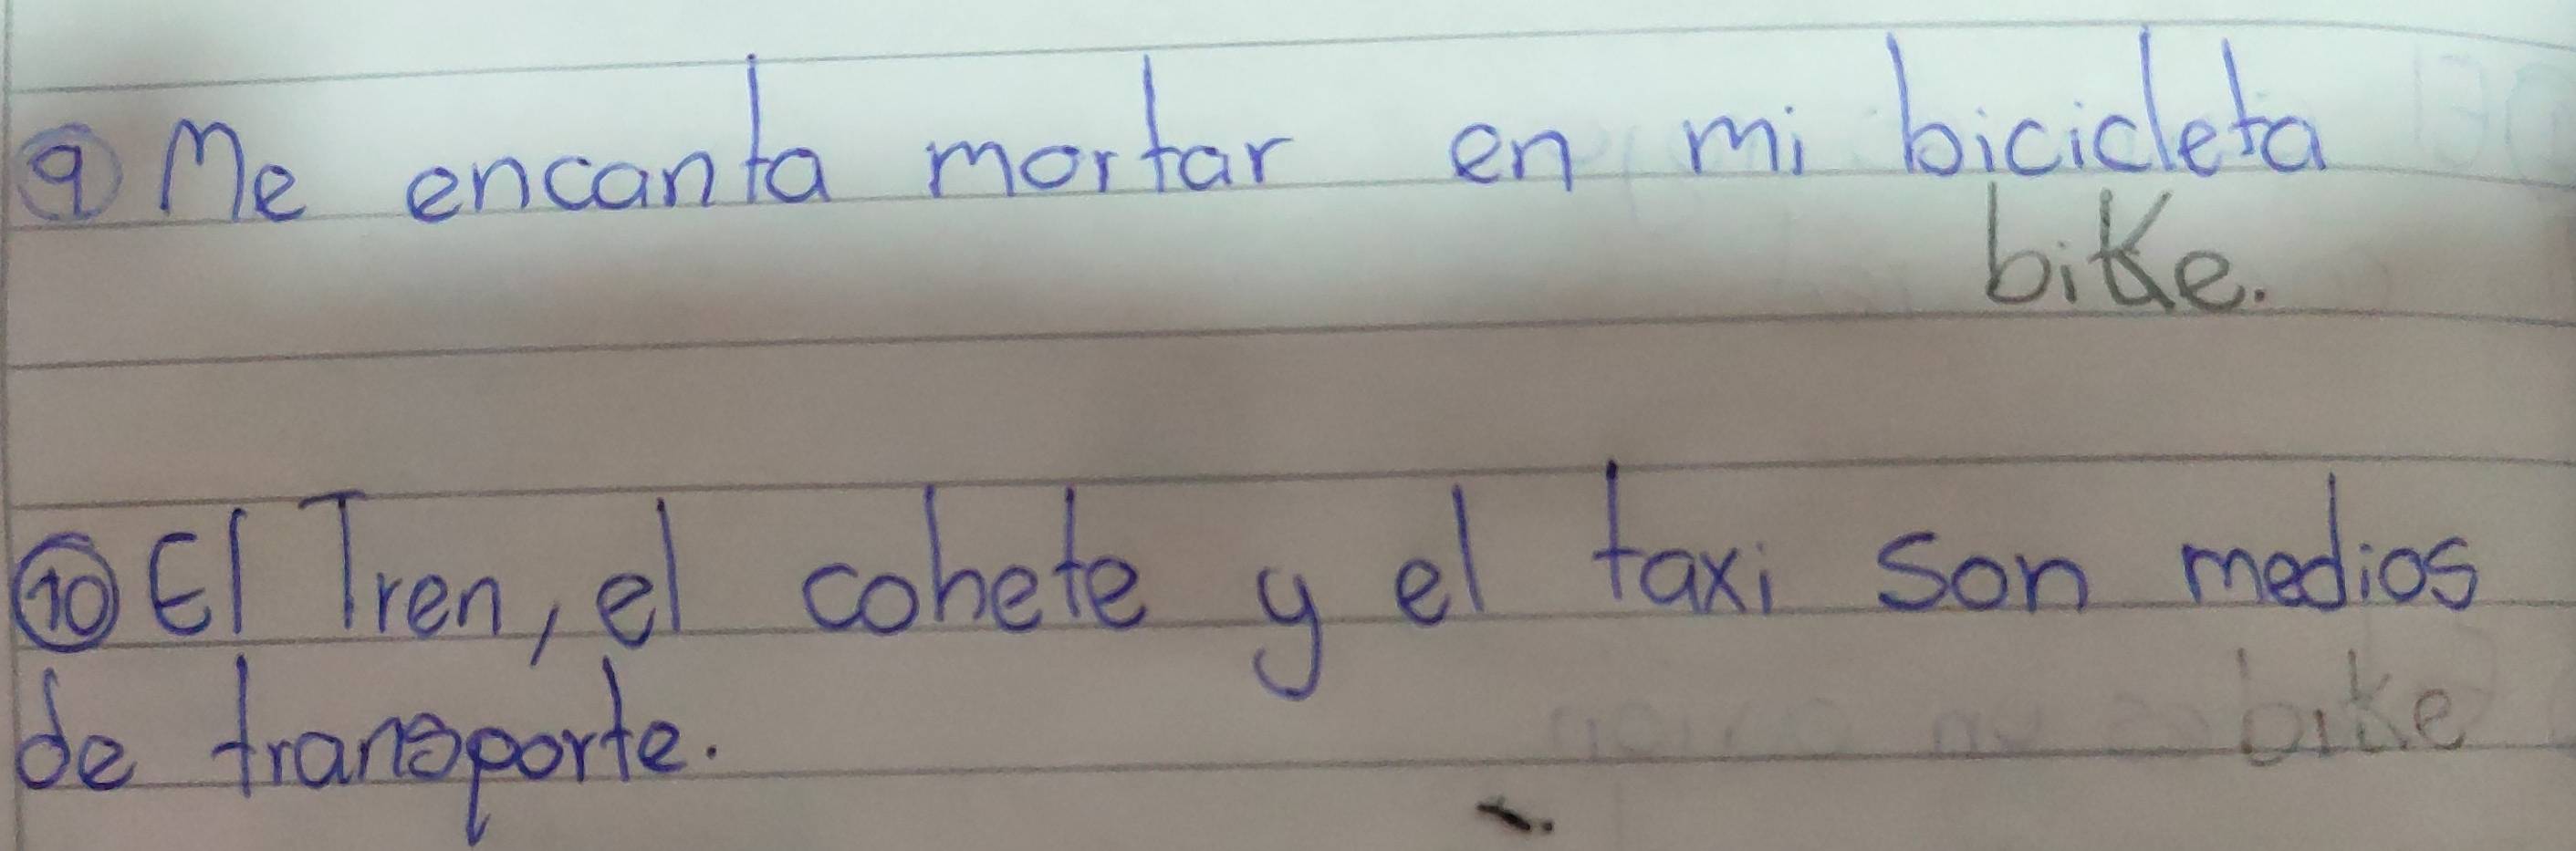 9 Me encanta mortar en mi bicicleta
bike.
10 El Tren, el cohete y el taxi son medios
de transporte.
bike